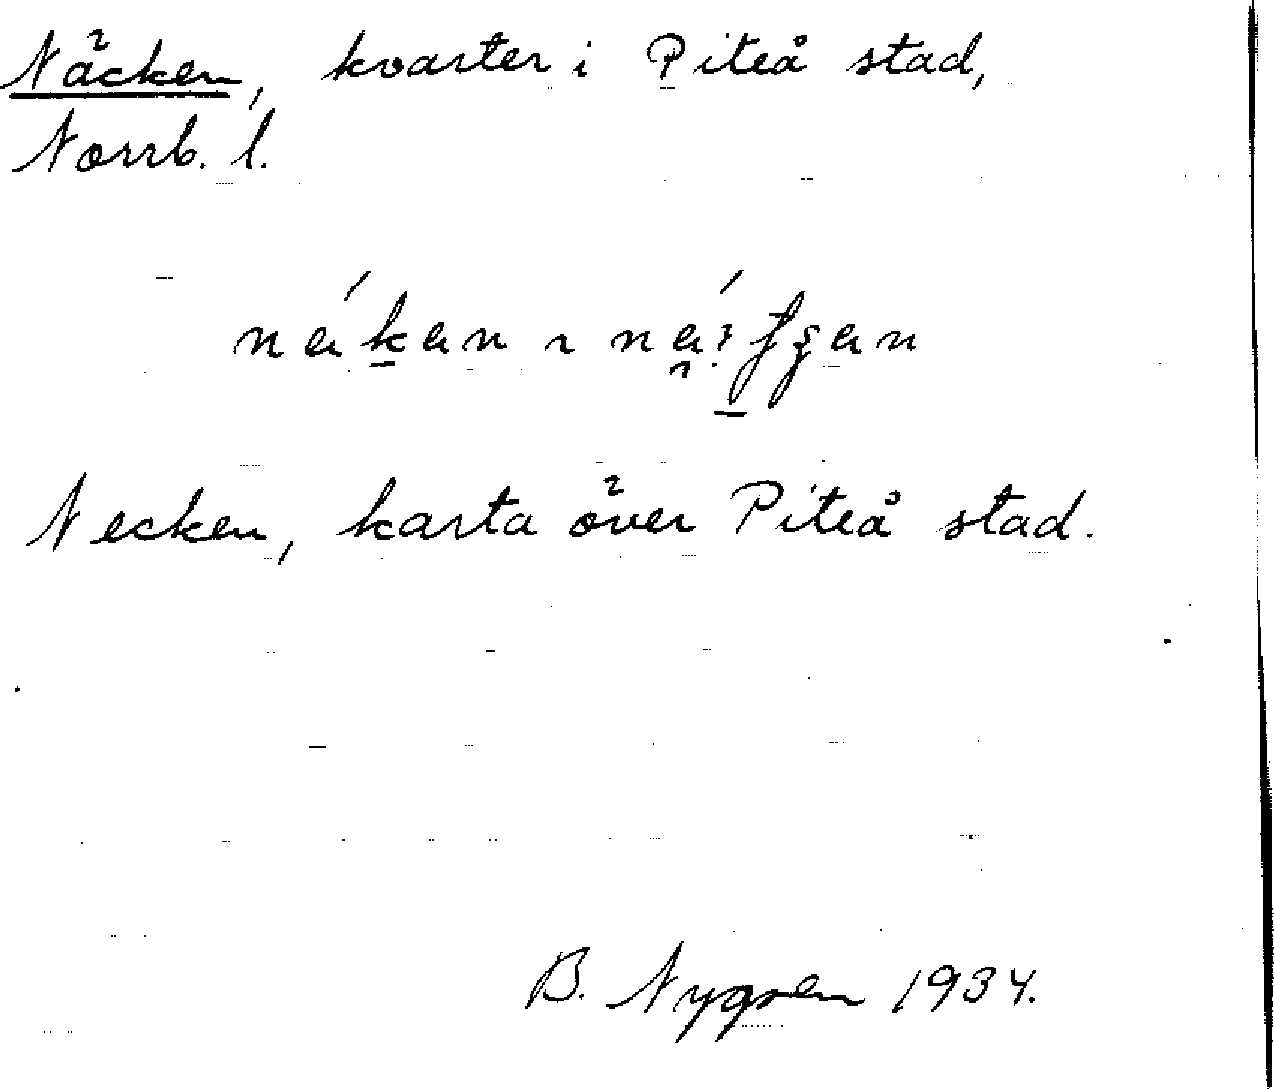 Näcken, kvarter i Piteå stad,
Norrb. l.
Necken, karta över Piteå stad.
B. Nygren 1934.